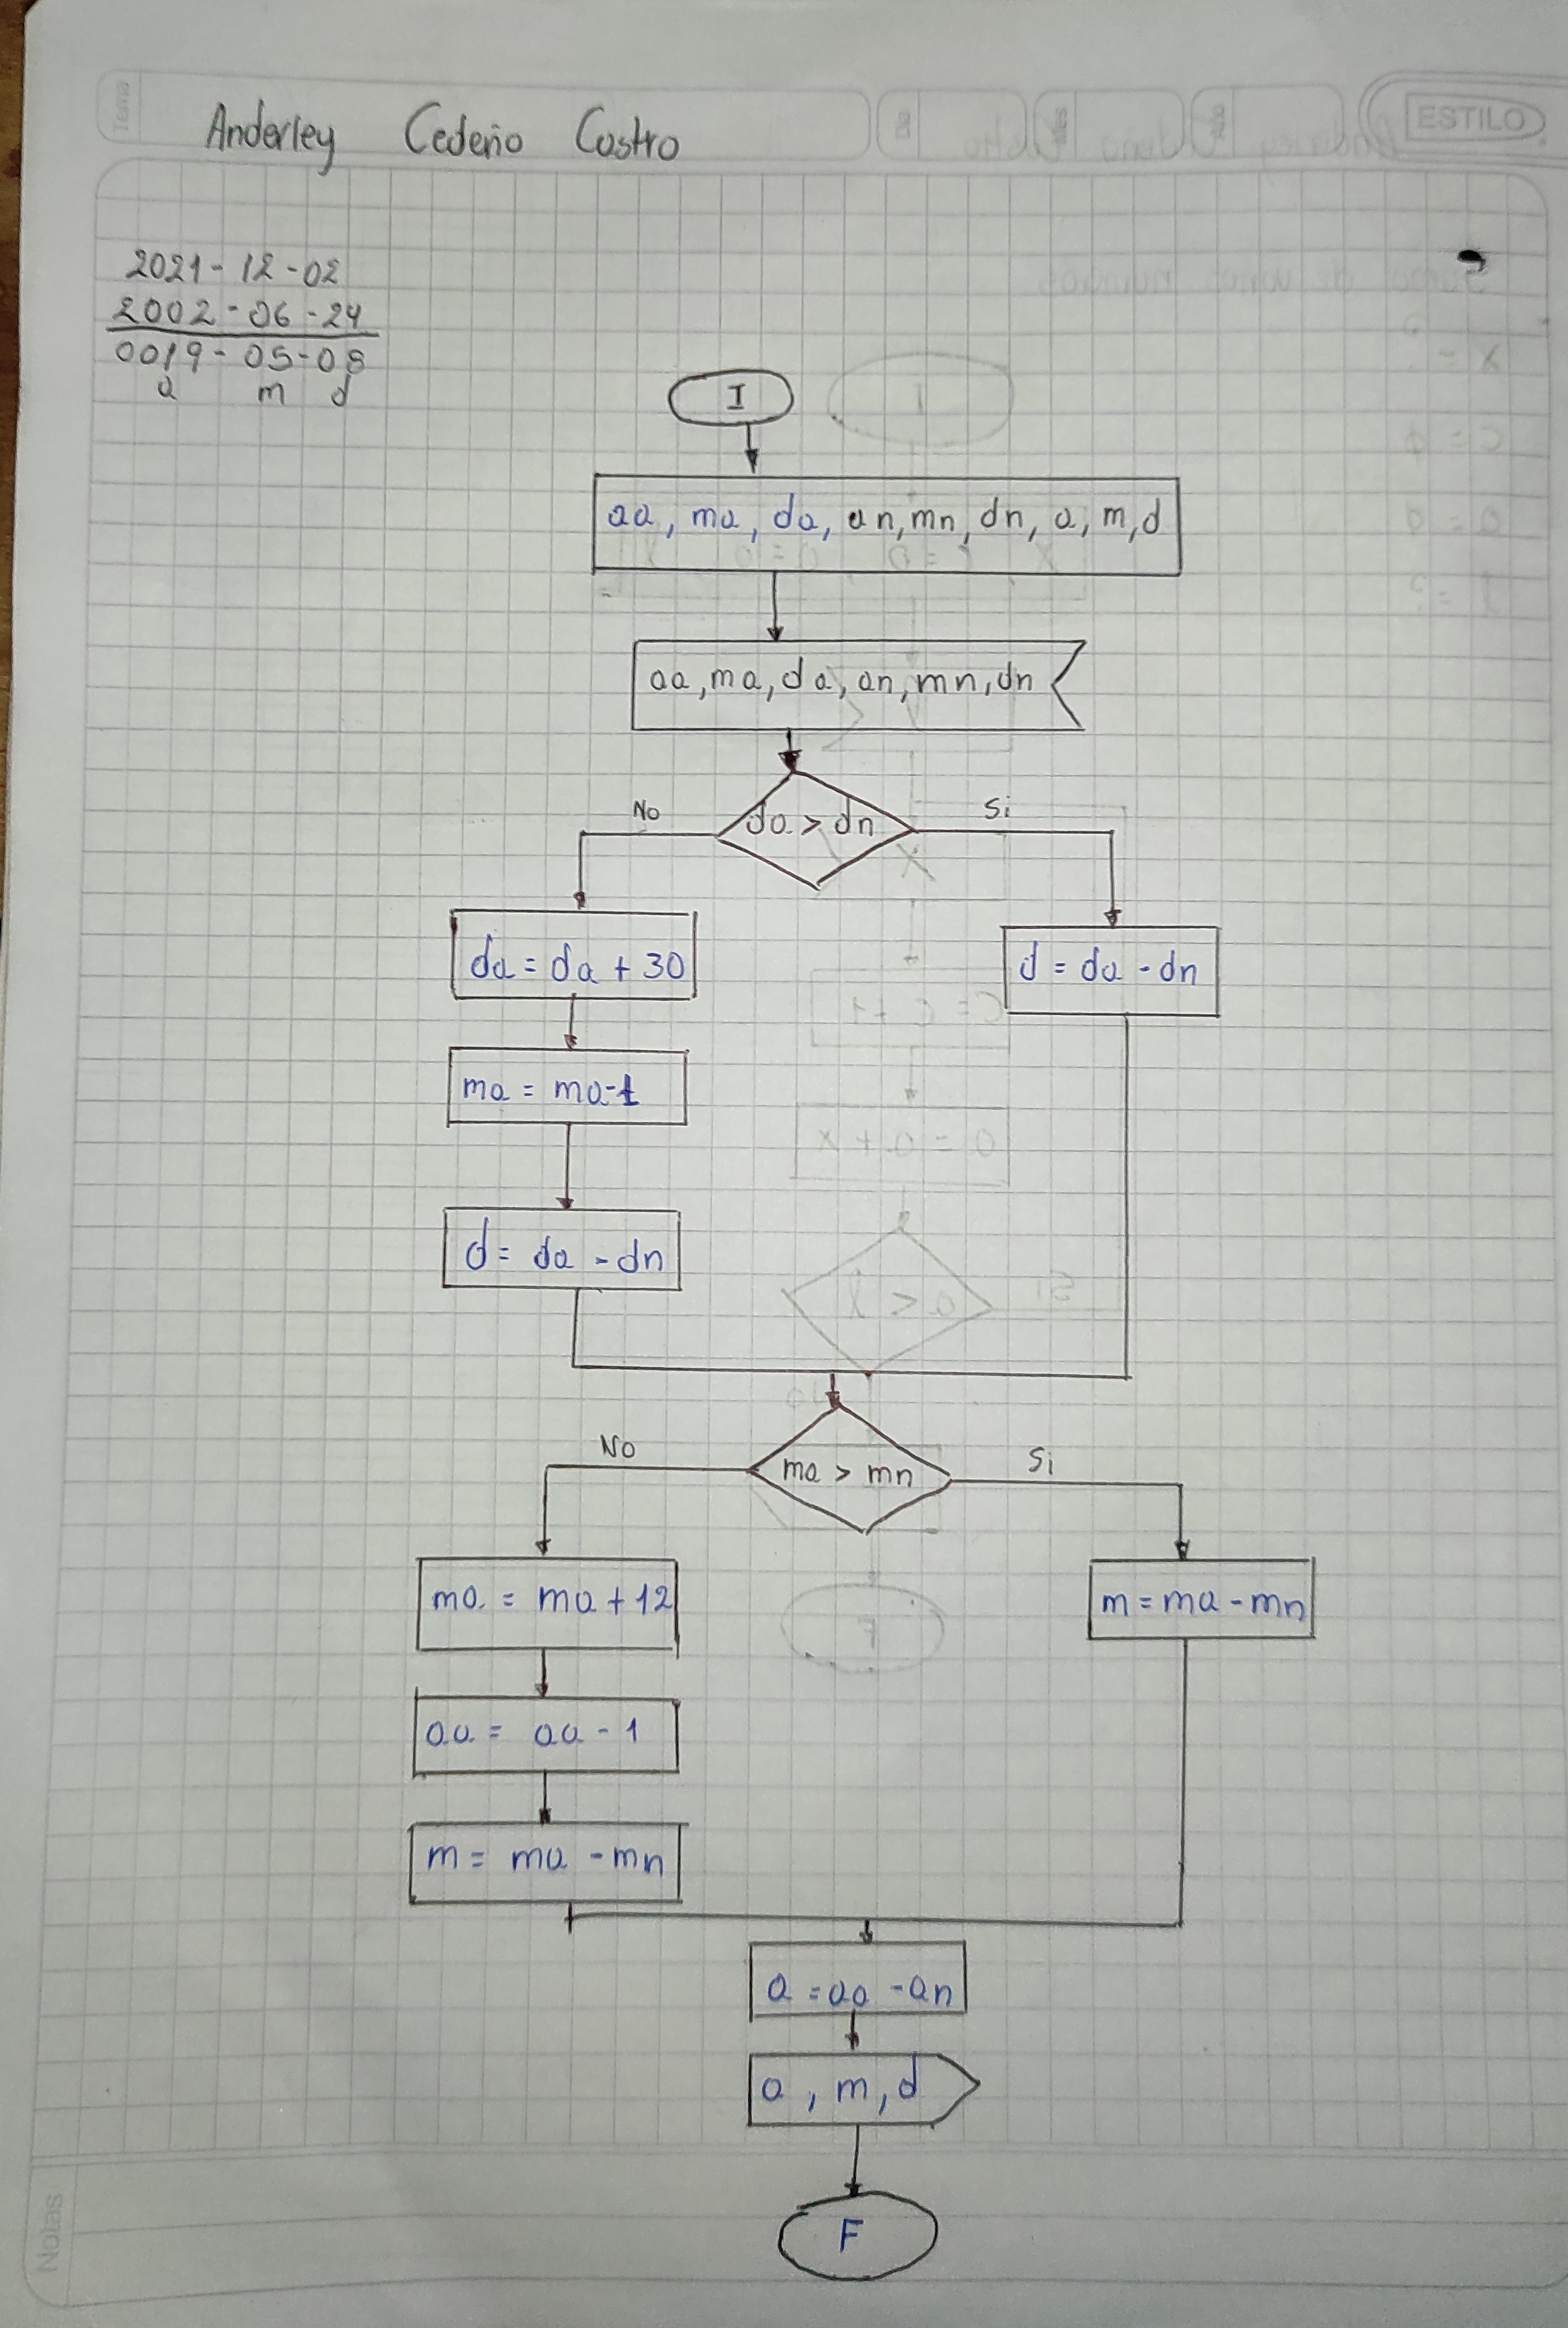 Tema
Anderley Cedeño Castro
Día
Mes
Año
ESTILO
2021-12-02
2002-06-24
0019-05-08
a m d
I
aa, ma, da, an, mn, dn, a, m, d
aa, ma, da, an, mn, dn
No
da > dn
Si
da = da + 30
d = da - dn
ma = ma-1
d = da - dn
No
ma > mn
Si
ma = ma + 12
m = ma - mn
aa = aa - 1
m = ma - mn
a = aa - an
a, m, d
F
Notas